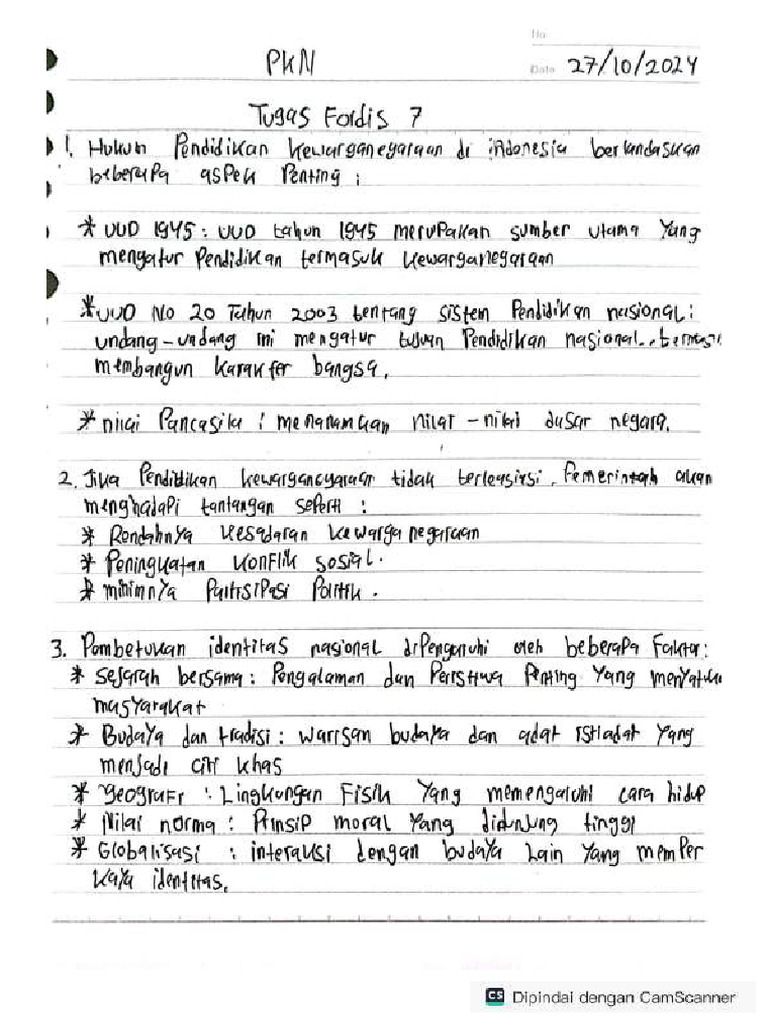 No
PKN
Date 27/10/2024
Tugas Fordis 7
1. Hukum Pendidikan kewarganegaraan di indonesia berlandaskan
beberapa aspek Penting :
* UUD 1945 : UUD tahun 1945 merupakan sumber utama yang
mengatur Pendidikan termasuk kewarganegaraan
* UUD No 20 Tahun 2003 tentang sistem Pendidikan nasional :
undang-undang ini mengatur tujuan Pendidikan nasional..
membangun karakter bangsa.
* nilai Pancasila : menanamkan nilai - nilai dasar negara.
2. Jika Pendidikan kewarganegaraan tidak Pemerintah akan
menghadapi tantangan seperti :
* Rendahnya kesadaran kewarganegaraan
* Peningkatan konflik sosial.
* minimnya Partisipasi Politik.
3. Pembetukan identitas nasional dipengaruhi oleh beberapa Faktor:
* sejarah bersama : Pengalaman dan Peristiwa Penting yang menyatukan
masyarakat
* Budaya dan tradisi : warisan budaya dan adat istiadat yang
menjadi ciri khas
* geografi : Lingkungan Fisik yang memengaruhi cara hidup
* Nilai norma : Prinsip moral yang dijunjung tinggi
* Globalisasi : interaksi dengan budaya lain yang memper
kaya identitas.
CS Dipindai dengan CamScanner